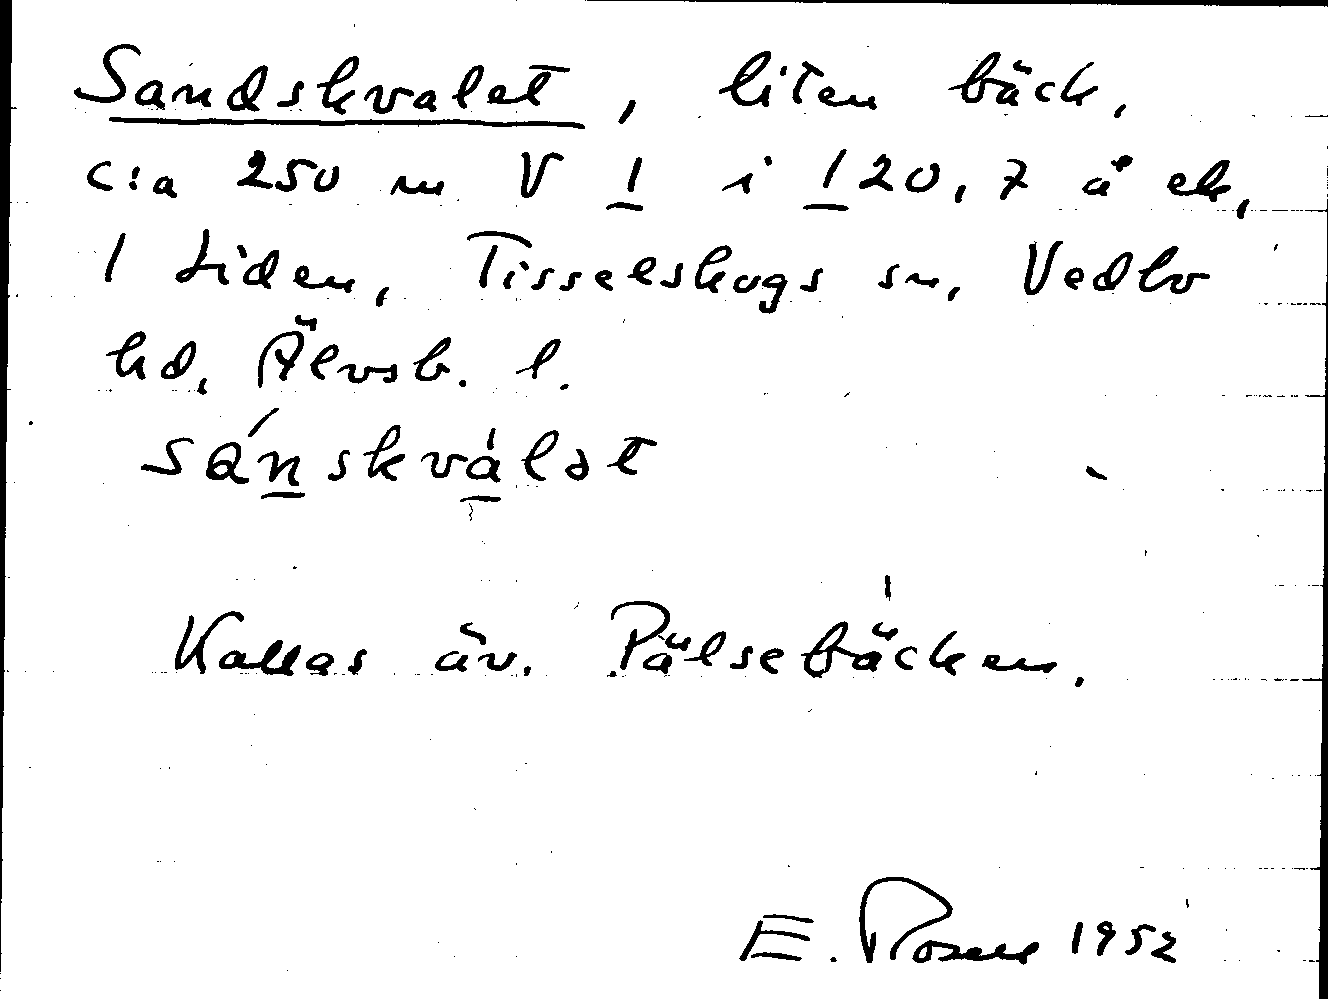 Sandskvalet, liten bäck,
c:a 250 m V 1 i 120,7 å ek,
1 Liden, Tisselskogs sn, Vedbo
hd, Älvsb. l.
sánskvàlət
Kallas äv. Pälsebäcken.
E. Rosell 1952